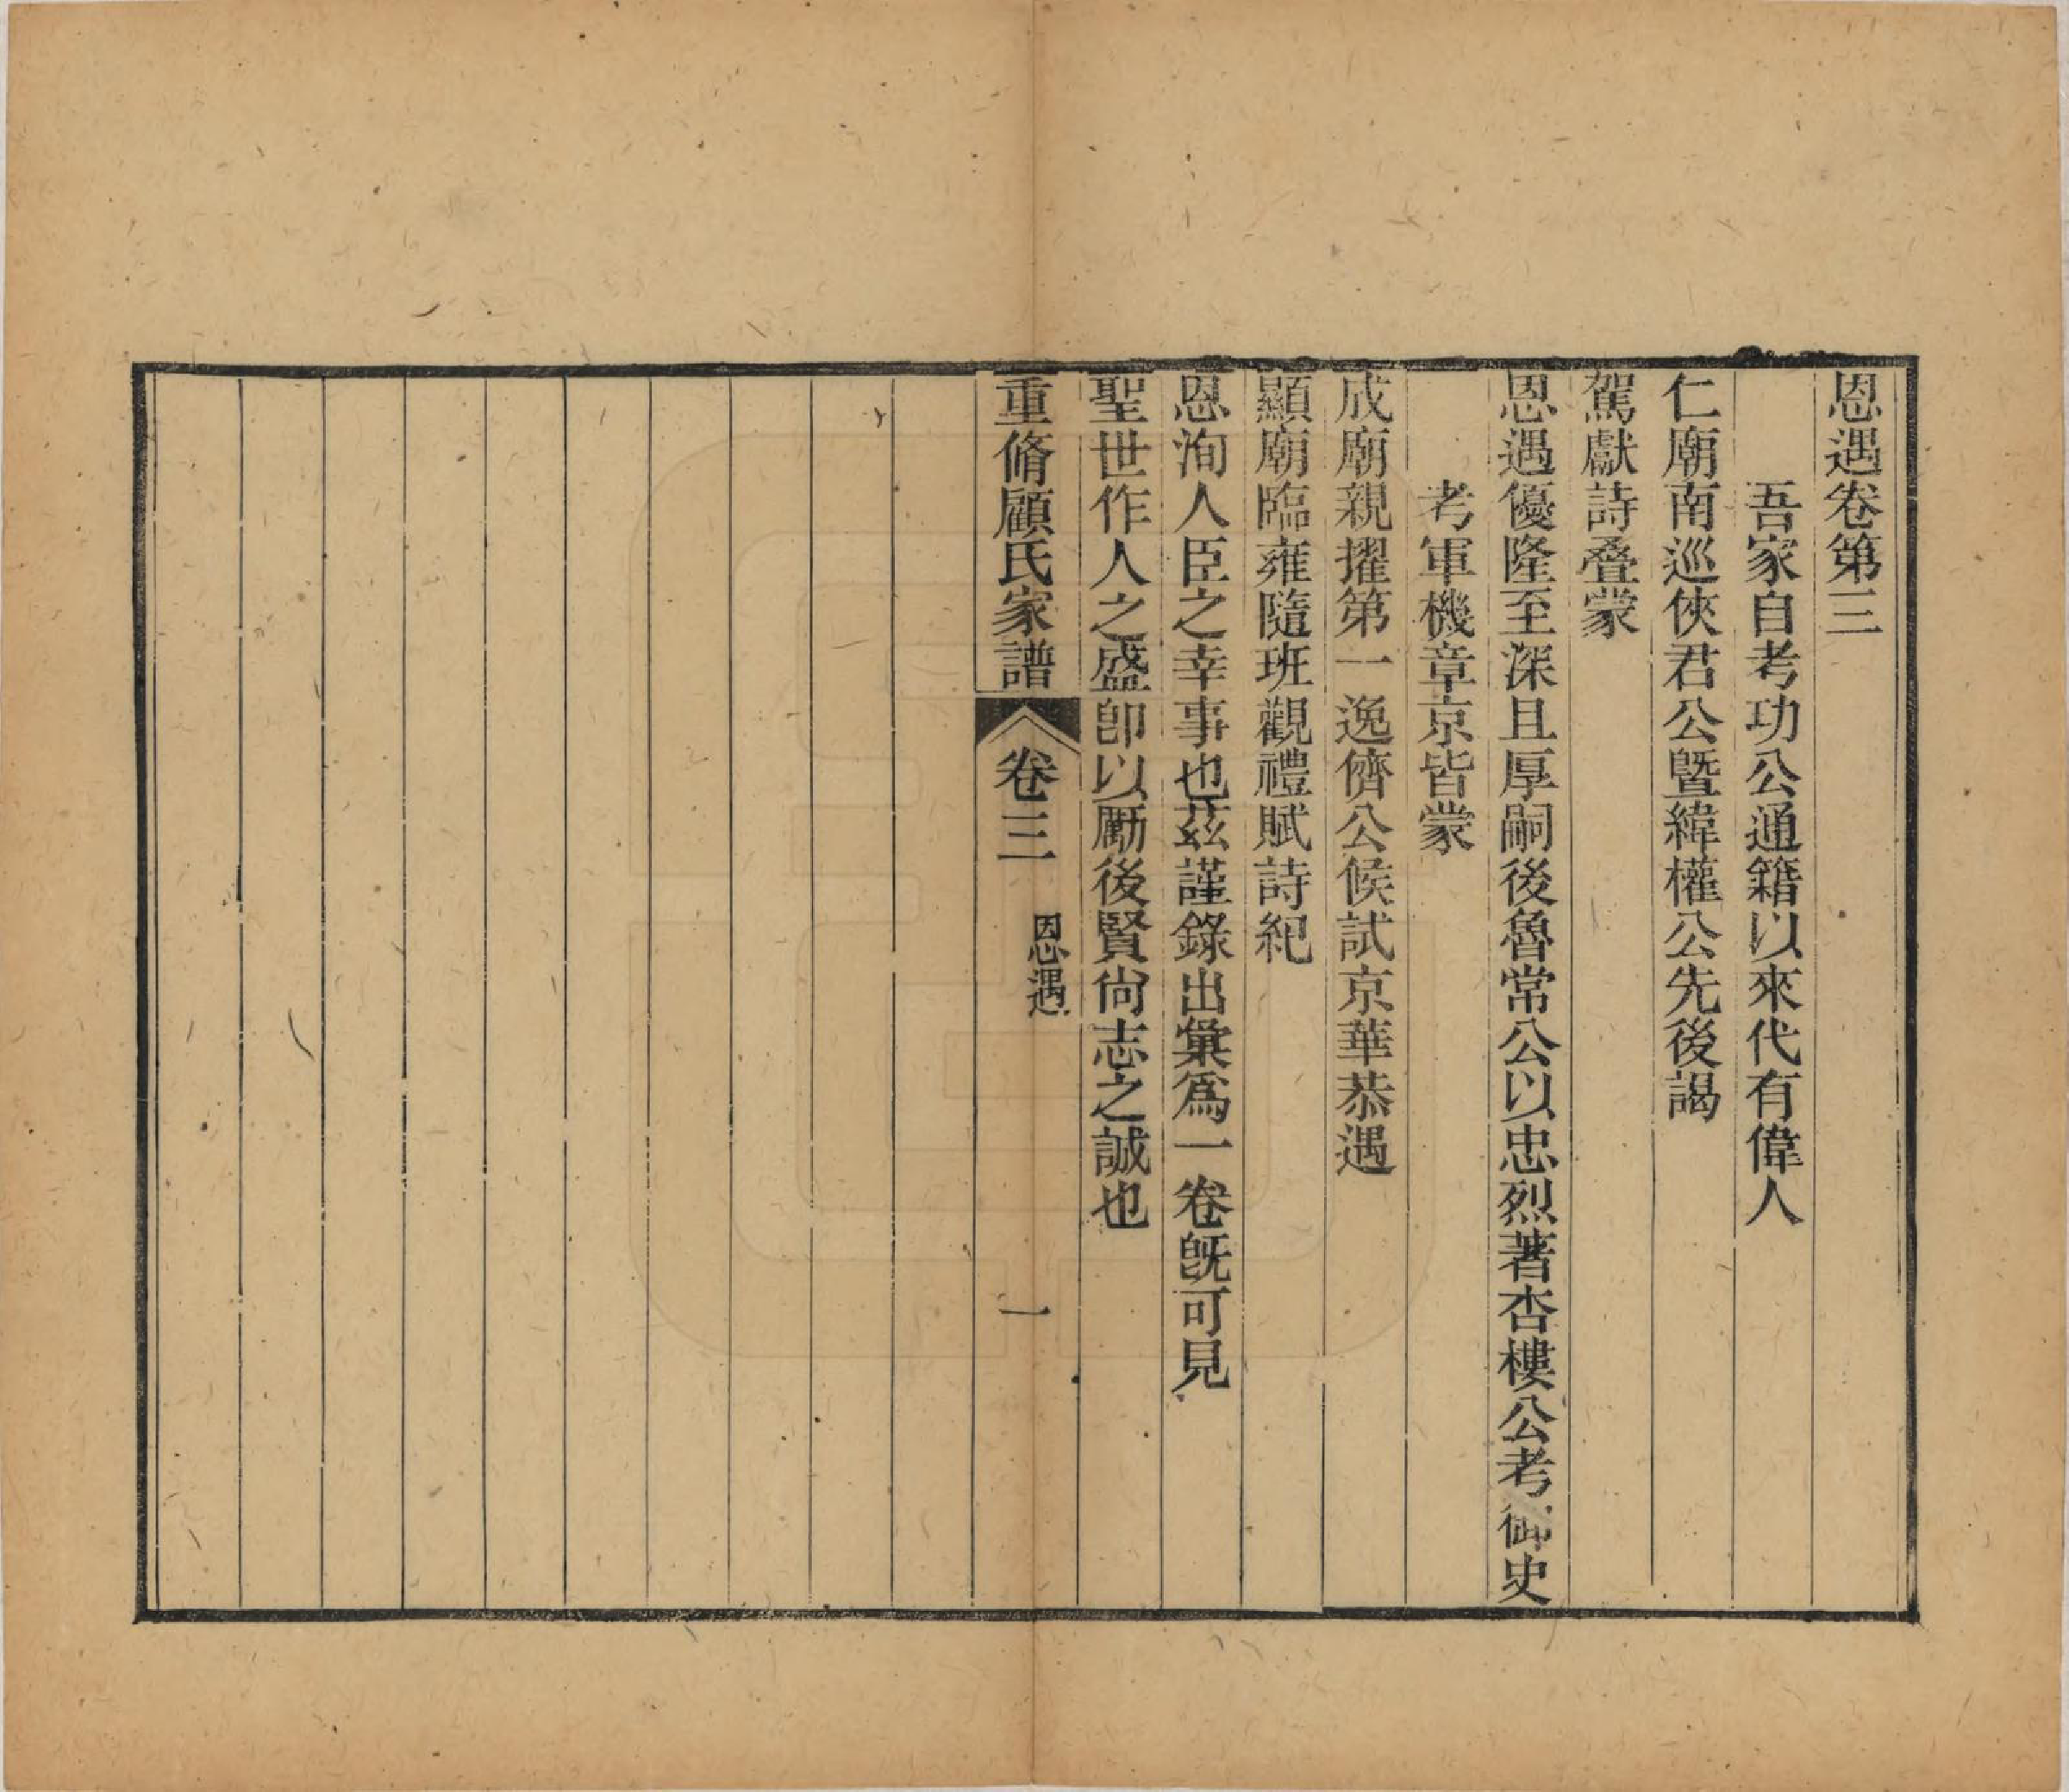 恩遇卷第三
吾家自考功公通籍以來代有偉人
仁廟南巡俠君公曁緯權公先後謁
駕獻詩叠蒙
恩遇優隆至深且厚嗣後魯常公以忠烈著杏樓公考御史
考軍機章京皆蒙
成廟親擢第一逸儕公候試京華恭遇
顯廟臨雍隨班觀禮賦詩紀
恩洵人臣之幸事也茲謹錄出彙爲一卷旣可見
聖世作人之盛卽以勵後賢尙志之誠也
重脩顧氏家譜 卷三 恩遇 一